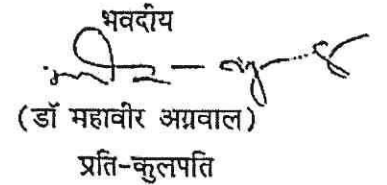 भवदीय
(डॉ महावीर अग्रवाल)
प्रति-कुलपति